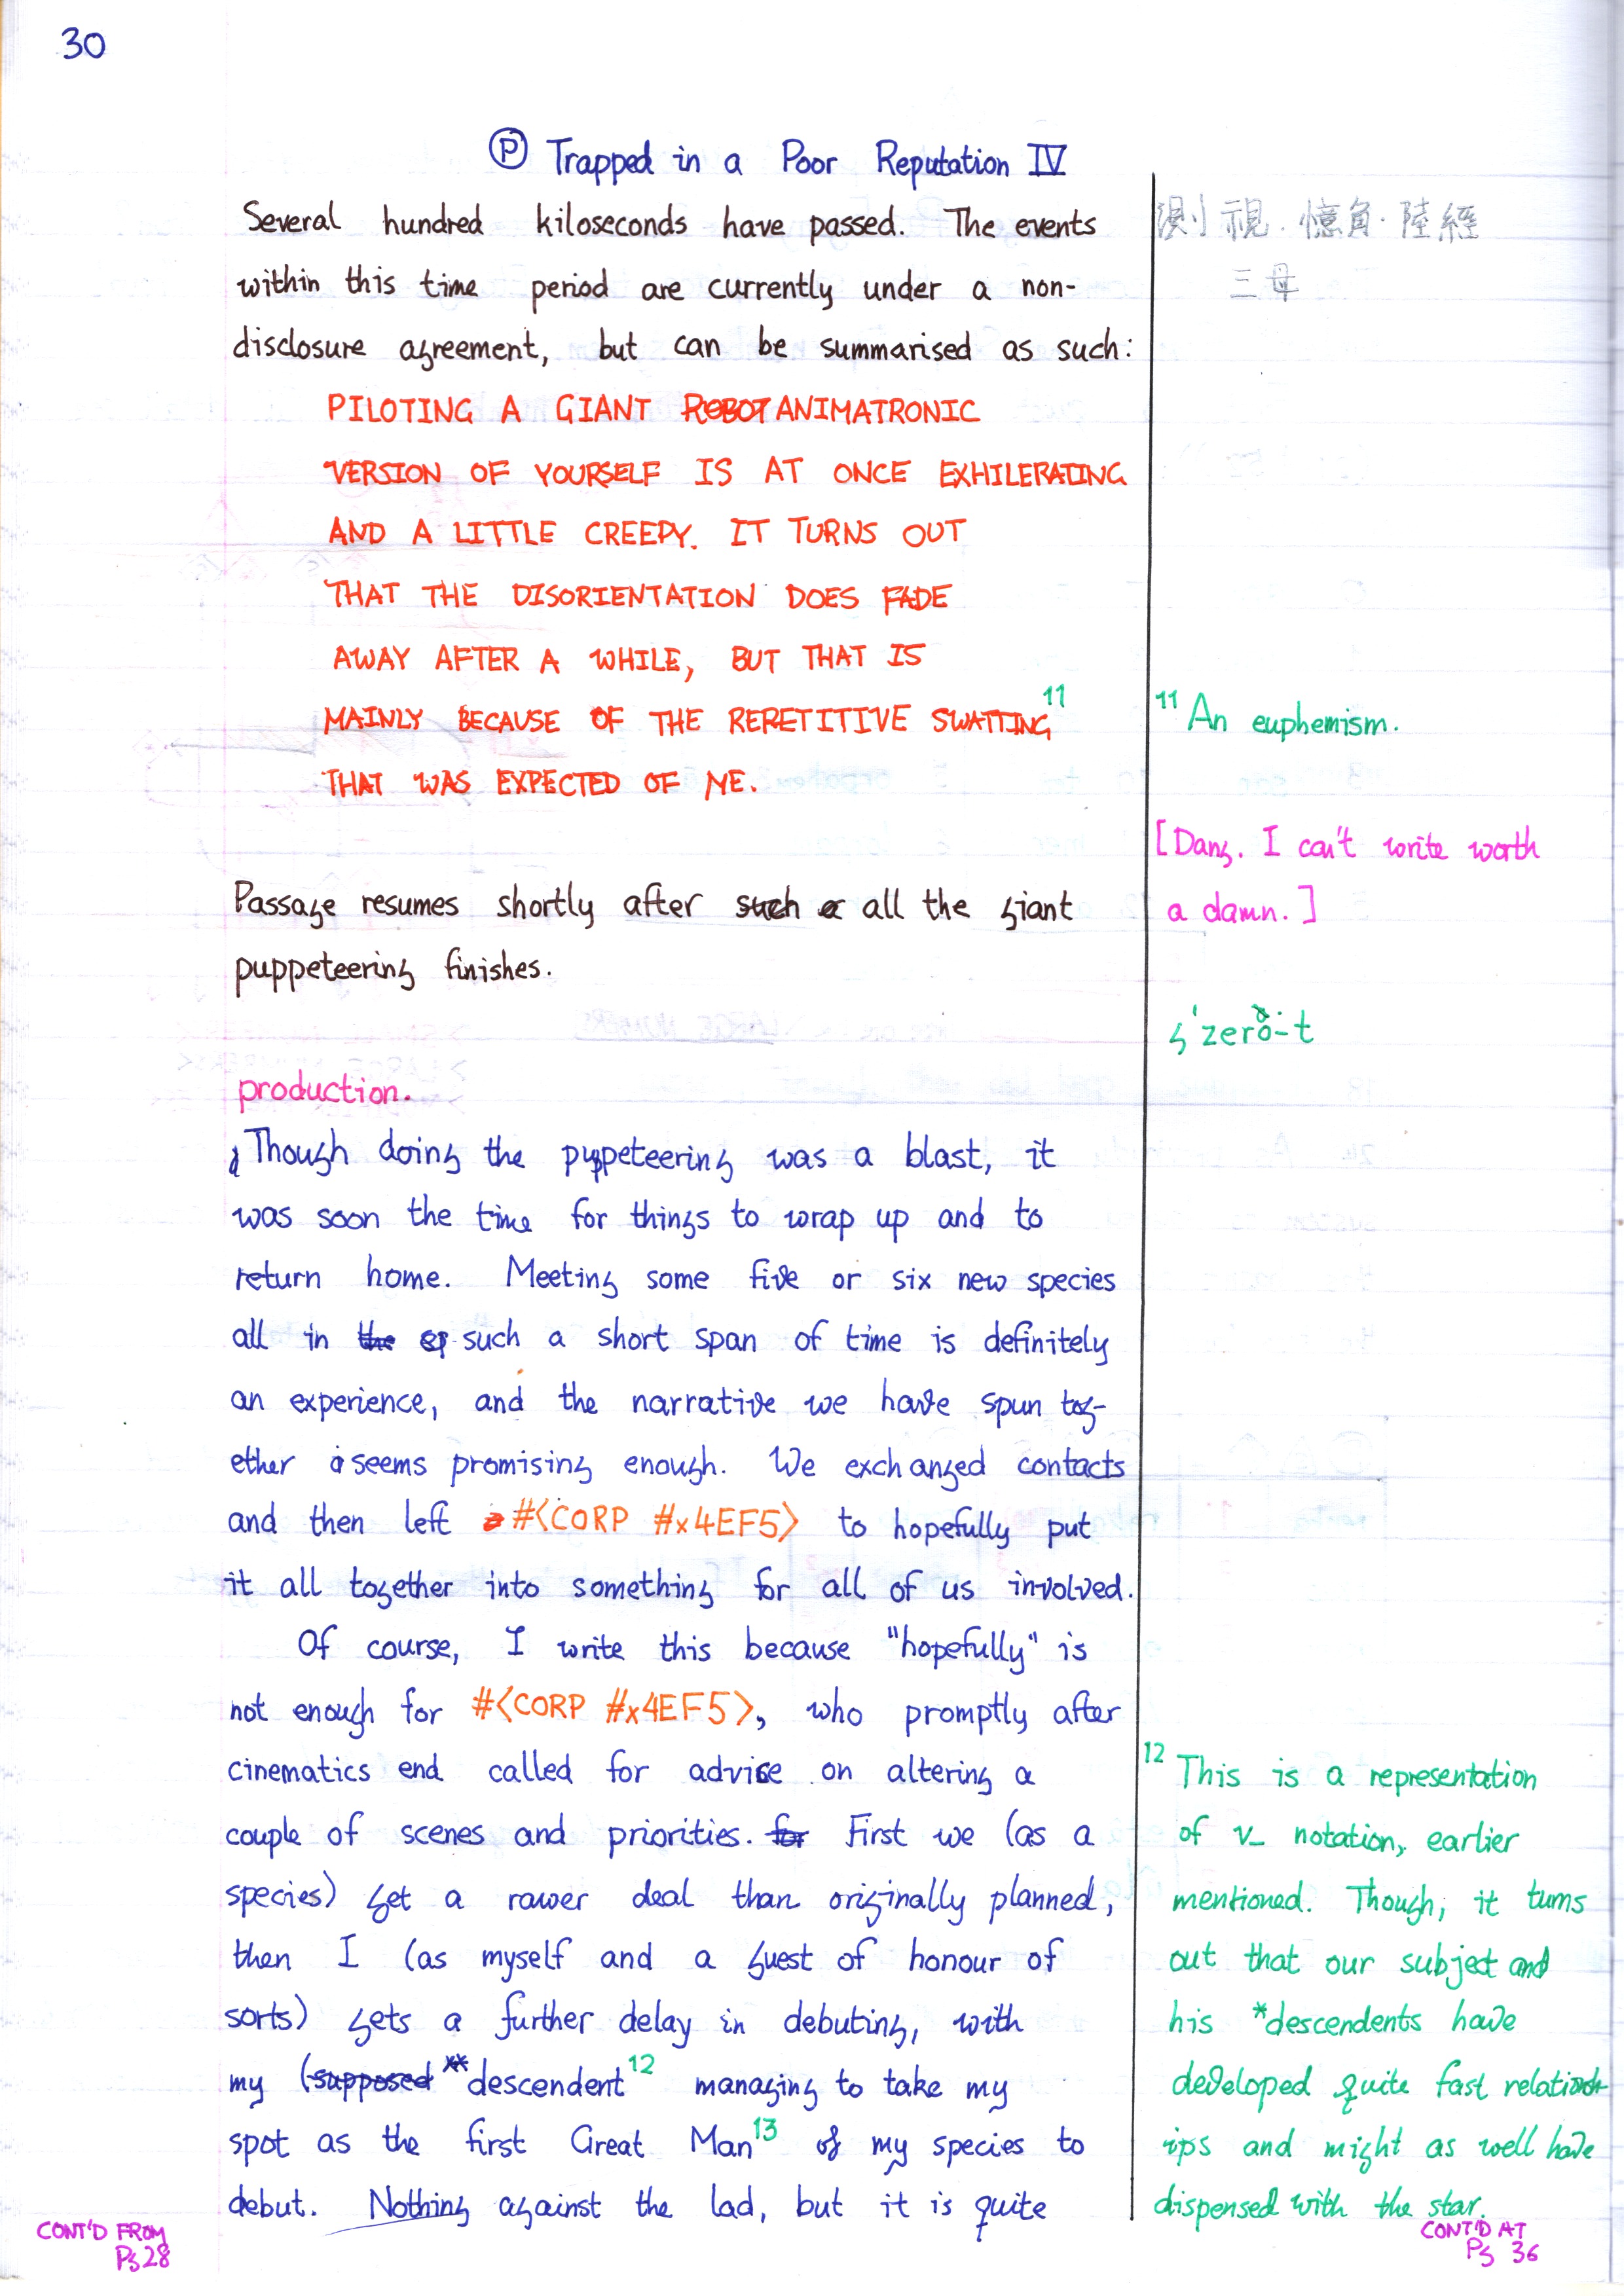 30
Ⓟ Trapped in a Poor Reputation IV
Several hundred kiloseconds have passed. The events
within this time period are currently under a non-
disclosure agreement, but can be summarised as such:
PILOTING A GIANT ROBOT ANIMATRONIC
VERSION OF YOURSELF IS AT ONCE EXHILERATING
AND A LITTLE CREEPY. IT TURNS OUT
THAT THE DISORIENTATION DOES FADE
AWAY AFTER A WHILE, BUT THAT IS
MAINLY BECAUSE OF THE REPETITIVE SWATTING¹¹
THAT WAS EXPECTED OF ME.
Passage resumes shortly after such a all the giant
puppeteering finishes.
production.
Though doing the puppeteering was a blast, it
was soon the time for things to wrap up and to
return home. Meeting some five or six new species
all in the sp such a short span of time is definitely
an experience, and the narrative we have spun tog-
ether seems promising enough. We exchanged contacts
and then left #<CORP #x4EF5> to hopefully put
it all together into something for all of us involved.
Of course, I write this because "hopefully" is
not enough for #<CORP #x4EF5>, who promptly after
cinematics end called for advice on altering a
couple of scenes and priorities. for First we (as a
species) get a rawer deal than originally planned,
then I (as myself and a guest of honour of
sorts) gets a further delay in debuting, with
my (supposed **descendent¹² managing to take my
spot as the first Great Man¹³ of my species to
debut. Nothing against the lad, but it is quite
測視·憶角·陸經
三母
¹¹ An euphemism.
[Dang. I can't write worth
a damn.]
g'zerȯ-t
¹² This is a representation
of v_ notation, earlier
mentioned. Though, it turns
out that our subject and
his *descendents have
developed quite fast relationsh-
ips and might as well have
dispensed with the star.
CONT'D FROM
Pg 28
CONT'D AT
Pg 36